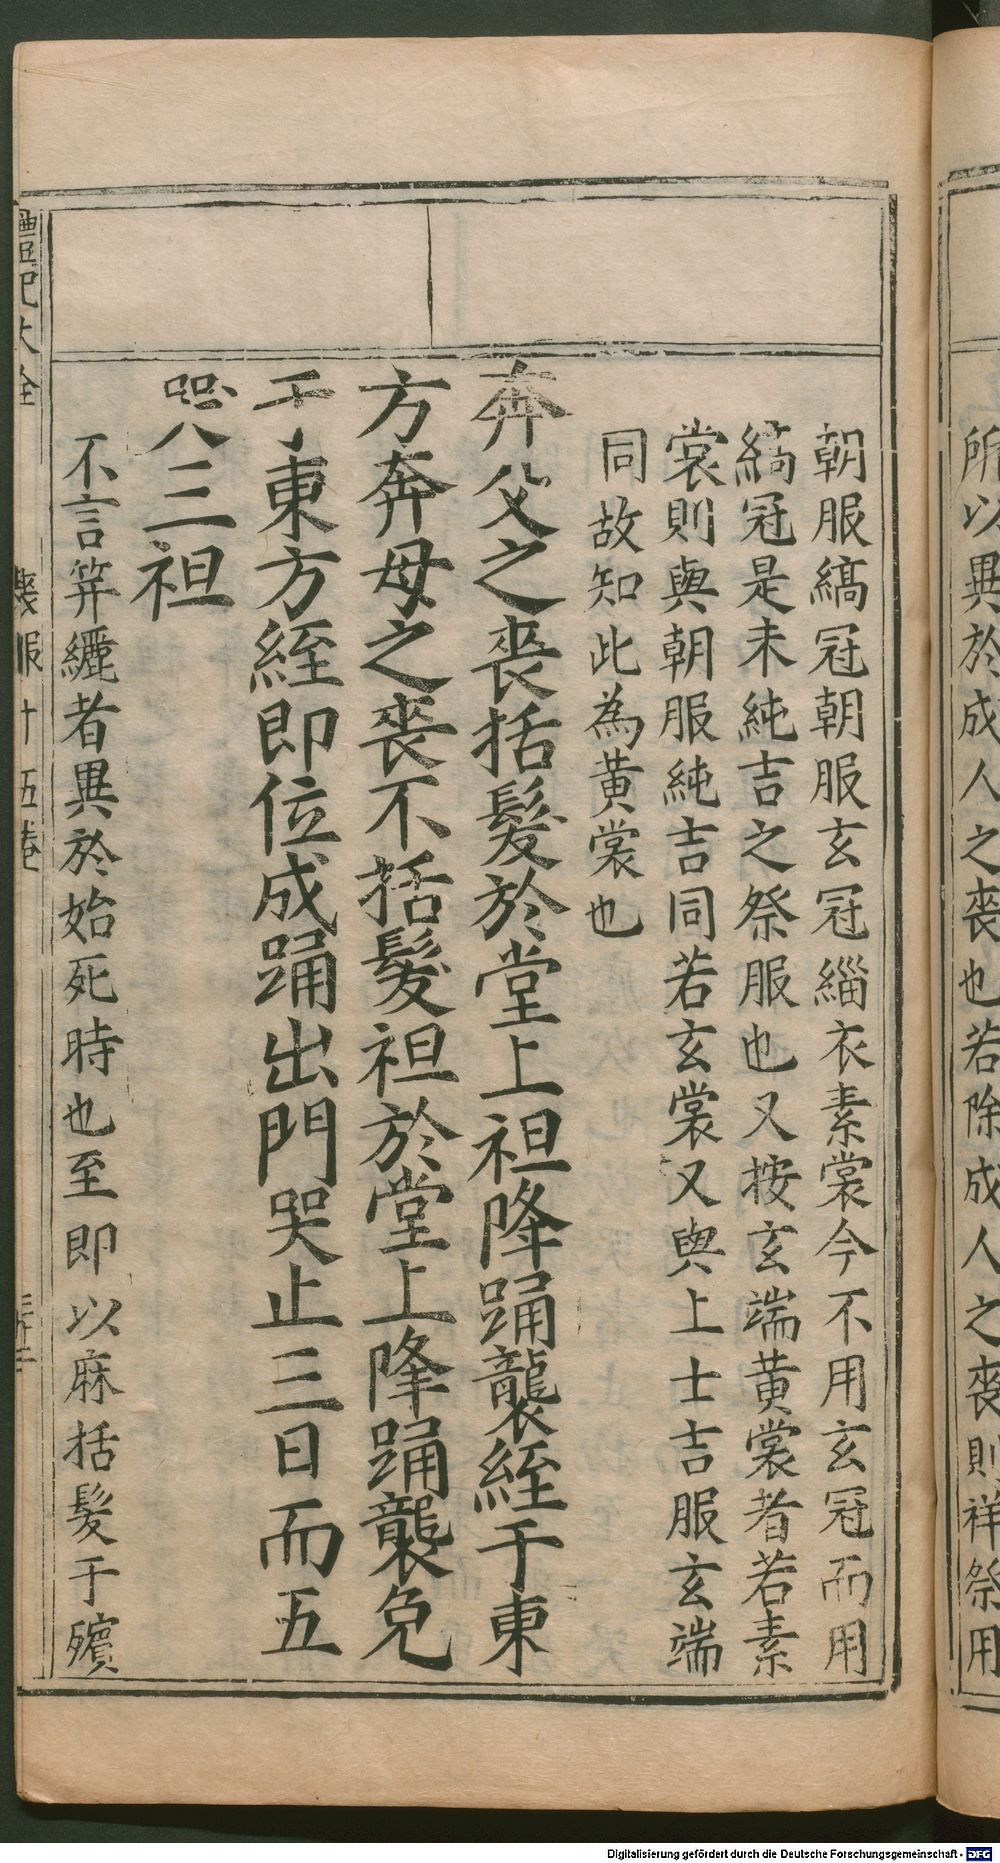 所以異於成人之喪也若除成人之喪則祥祭用
朝服縞冠朝服玄冠緇衣素裳今不用玄冠而用
縞冠是未純吉之祭服也又按玄端黃裳者若素
裳則與朝服純吉同若玄裳又與上士吉服玄端
同故知此為黃裳也
奔父之喪括髮於堂上袒降踊襲絰于東
方奔母之喪不括髮袒於堂上降踊襲免
于東方絰即位成踊出門哭止三日而五
哭三袒
不言筓纚者異於始死時也至即以麻括髮于殯
禮記大全
喪服十五卷
Digitalisierung gefördert durch die Deutsche Forschungsgemeinschaft - DFG